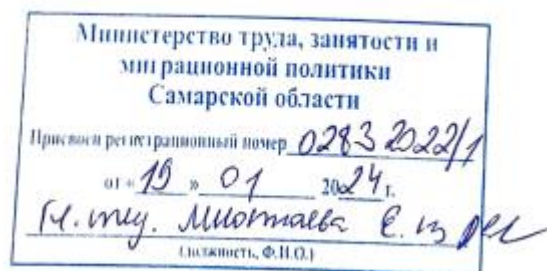 Министерство труда, занятости и
миграционной политики
Самарской области
Присвоен регистрационный номер 02832022/1
от « 19 » 01 2024 г.
Гл. спец.
(должность, Ф.И.О.)